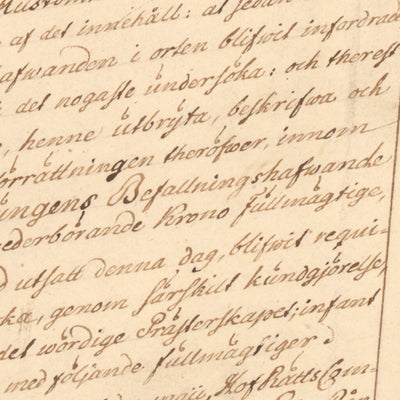 af det innehåll: at sedan
afwanden i orten blifwit infordradt
det nogaste undersöka: och therest
henne utbryta, beskrifwa och
örrättningen theröfwer, innom
ungens Befallningshafwande
ederbörande Krono fullmägtige,
utsatt denna dag, blifwit requi-
ka, genom särskilt kundgjörelse,
det wördige Prästerskapet; infant
med följande fullmägtiger
Hof Rätts Com-